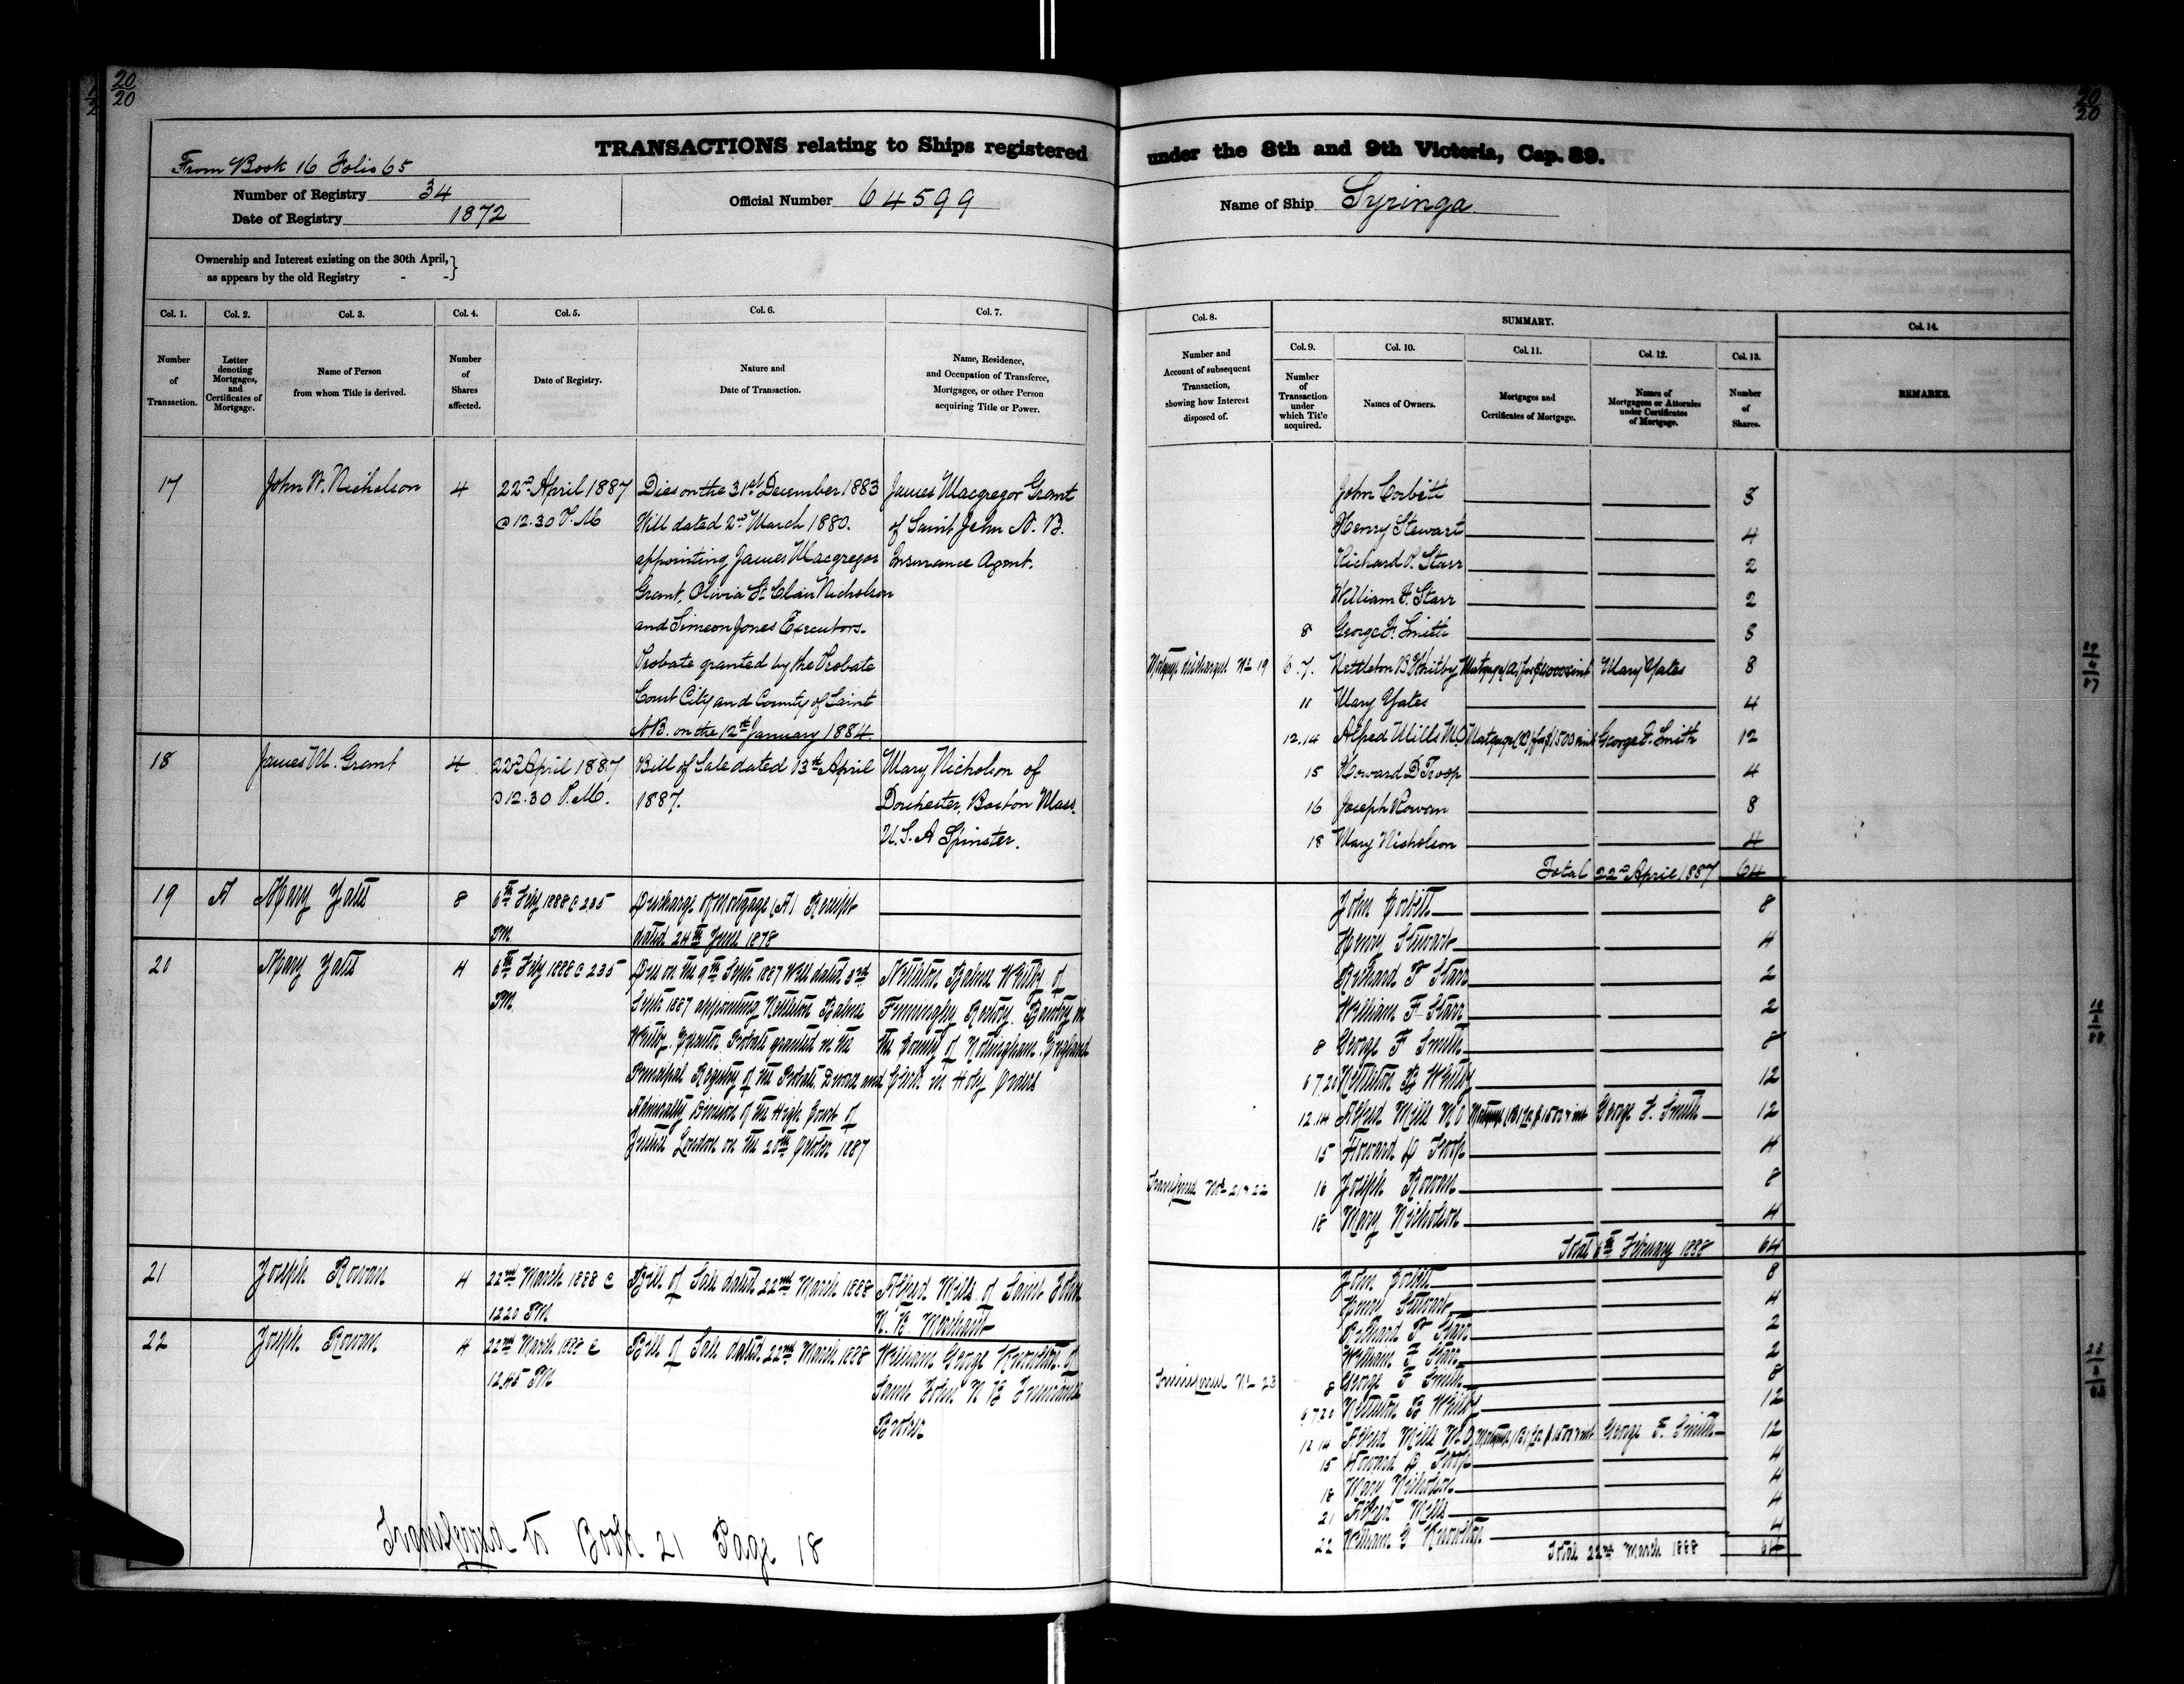 20
20
20
20
TRANSACTIONS relating to Ships registered under the 8th and 9th Victoria, Cap. 89.
From Book 16 Folio 65
Number of Registry 34
Date of Registry 1872
Official Number 64599
Name of Ship Syringa
Ownership and Interest existing on the 30th April,
as appears by the old Registry - -}
Col. 1.
Number
of
Transaction.
Col. 2.
Letter
denoting
Mortgages,
and
Certificates of
Mortgage.
Col. 3.
Name of Person
from whom Title is derived.
Col. 4.
Number
of
Shares
affected.
Col. 5.
Date of Registry.
Col. 6.
Nature and
Date of Transaction.
Col. 7.
Name, Residence,
and Occupation of Transferee,
Mortgagee, or other Person
acquiring Title or Power.
Col. 8.
Number and
Account of subsequent
Transaction,
showing how Interest
disposed of.
SUMMARY.
Col. 9.
Number
of
Transaction
under
which Title
acquired.
Col. 10.
Names of Owners.
Col. 11.
Mortgages and
Certificates of Mortgage.
Col. 12.
Names of
Mortgagees or Attornies
under Certificates
of Mortgage.
Col. 13.
Number
of
Shares.
Col. 14.
REMARKS.
17
John W. Nicholson
4
22nd April 1887
@ 12.30 P.M
Dies on the 31st December 1883
Will dated 2nd March 1880.
appointing James Macgregor
Grant, Olivia St Clair Nicholson
and Simeon Jones Executors.
Probate granted by the Probate
Court City and County of Saint
N B. on the 12th January 1884.
James Macgregor Grant
of Saint John N. B.
Insurance Agent.
18
James M. Grant
4
22nd April 1887
@ 12.30 P.M.
Bill of Sale dated 13th April
1887.
Mary Nicholson of
Dorchester, Boston Mass.
U.S.A Spinster.
19
A
Mary Yates
8
6th Feby 1888 @ 2.35
PM
Discharge of Mortgage (A) Receipt
dated 24th June 1878
20
Mary Yates
4
6th Feby 1888 @ 2.35
PM
Died on the 9th Sept 1887 Will dated 3rd
Sept 1887 appointing Nettleton Balme
Whitby Executor Probate granted in the
Principal Registry of the Probate Divorce and
Admiralty Division of the High Court of
Justice London on the 20th October 1887
Nettleton Balme Whitby of
Finningley Rectory. Bawtry in
the County of Nottingham. England
Clerk in Holy Orders
21
Joseph Rowan
4
22nd March 1888 @
12.20 PM
Bill of Sale dated 22nd March 1888
Alfred Mills of Saint John
N. B. Merchant
22
Joseph Rowan
4
22nd March 1888 @
12.45 PM
Bill of Sale dated 22nd March 1888
William George Knowlton of
Saint John N B Insurance
Broker
Transferred to Book 21 Page 18
John Corbett 8
Henry Stewart 4
Richard P. Starr 2
William F. Starr 2
8 George F. Smith 8
Mortgage discharged No 19 6.7. Nettleton B Whitby Mortgage (A) for £1000 & int Mary Yates 8
11 Mary Yates 4
12.14 Alfred Mills M.O Mortgage (B) for $1500 & int George F. Smith 12
15 Howard D Troop 4
16 Joseph Rowan 8
18 Mary Nicholson 4
Total 22nd April 1887 64
John Corbett 8
Henry Stewart 4
Richard P Starr 2
William F Starr 2
8 George F Smith 8
6 7.20 Nettleton B Whitby 12
12.14 Alfred Mills M O Mortgage (B) for $1500 & int George F. Smith 12
15 Howard D Troop 4
Transferred Nos 21 & 22 16 Joseph Rowan 8
18 Mary Nicholson 4
Total 6th February 1888 64
John Corbett 8
Henry Stewart 4
Richard P Starr 2
William F Starr 2
Transferred No 23 8 George F Smith 8
6 7.20 Nettleton B Whitby 12
12.14 Alfred Mills M.O Mortgage (B) for $1500 & int George F. Smith 12
15 Howard D Troop 4
18 Mary Nicholson 4
21 Alfred Mills 4
22 William G Knowlton 4
Total 22nd March 1888 64